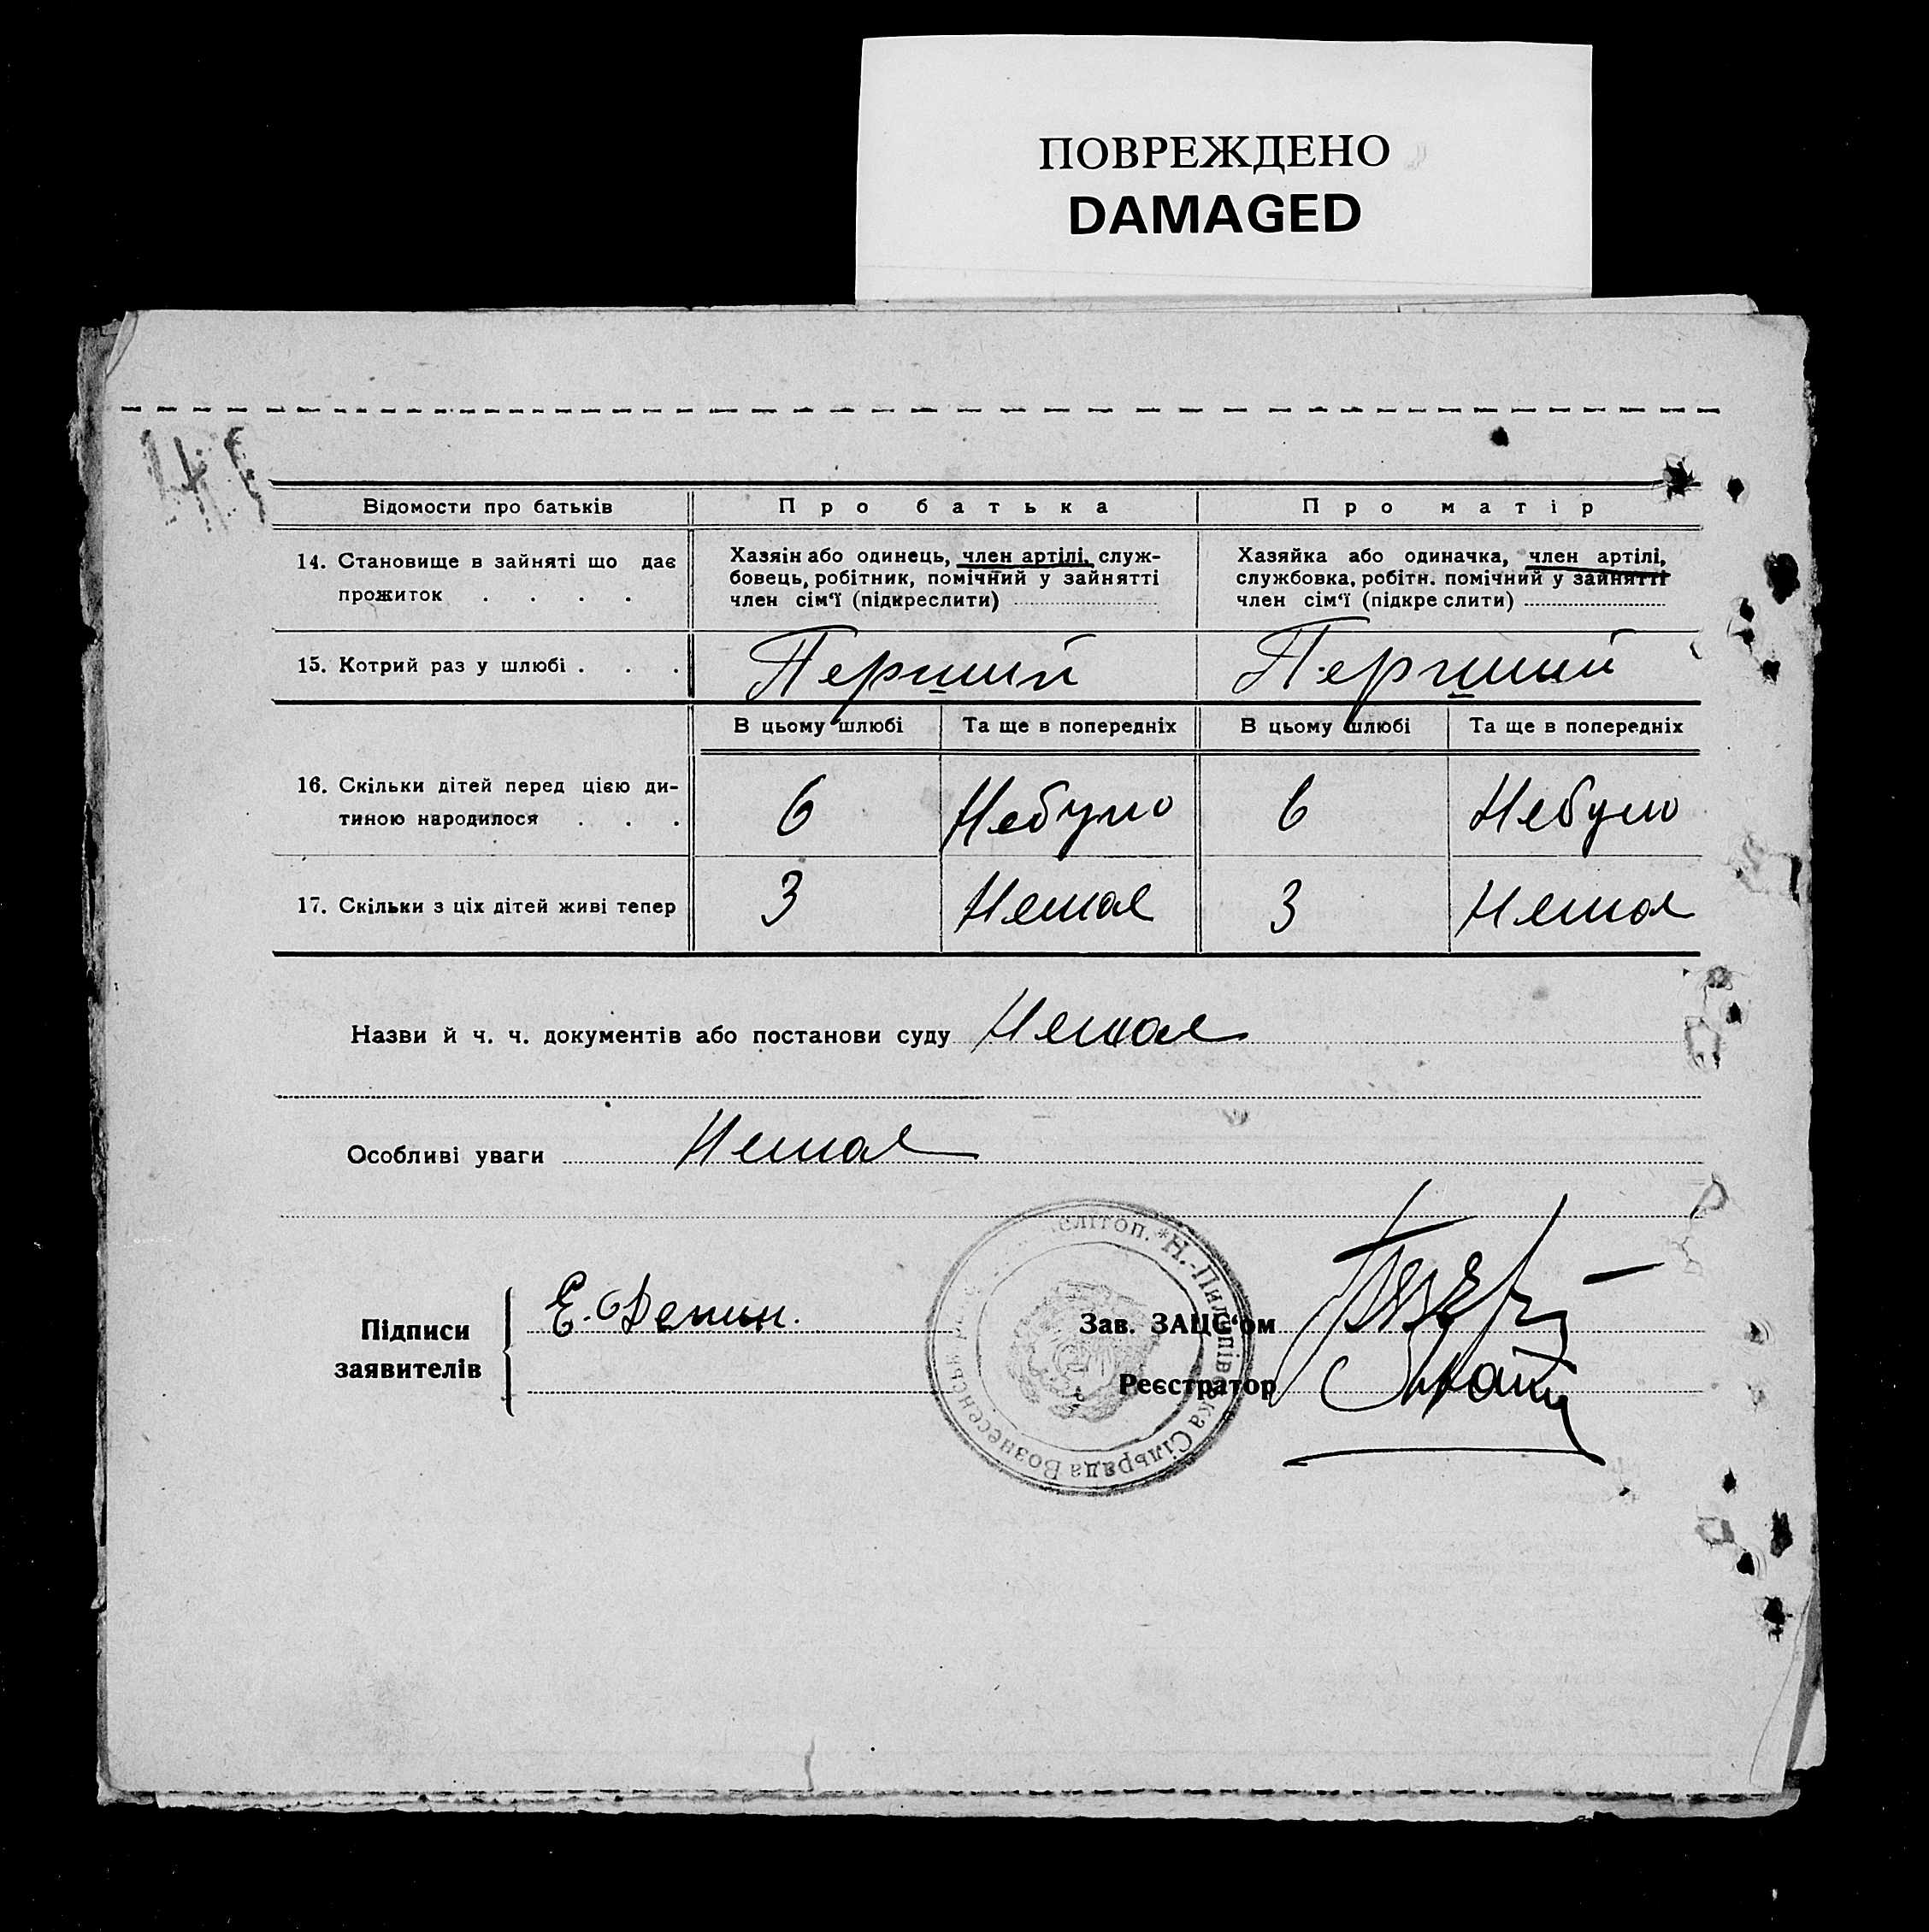 ПОВРЕЖДЕНО
DAMAGED
Відомости про батьків
Про батька
Про матір
14. Становище в зайняті що дає
прожиток . . . .
Хазяін або одинець, член артілі, служ-
бовець, робітник, помічний у зайнятті
член сім‘ї (підкреслити)
Хазяйка або одиначка, член артілі,
службовка, робітн. помічний у зайнятті
член сім‘ї (підкре слити)
15. Котрий раз у шлюбі . . .
Перший
Перший
В цьому шлюбі
Та ще в попередніх
В цьому шлюбі
Та ще в попередніх
16. Скільки дітей перед цією ди-
тиною народилося . . .
6
Небуло
6
Небуло
17. Скільки з ціх дітей живі тепер
3
Немає
3
Немає
Назви й ч. ч. документів або постанови суду Немає
Особливі уваги Немає
Підписи
заявителів
Е.
Зав. ЗАЦС‘ом
Реєстратор
Н.-Пилипівка Сільряда Вознесенськ